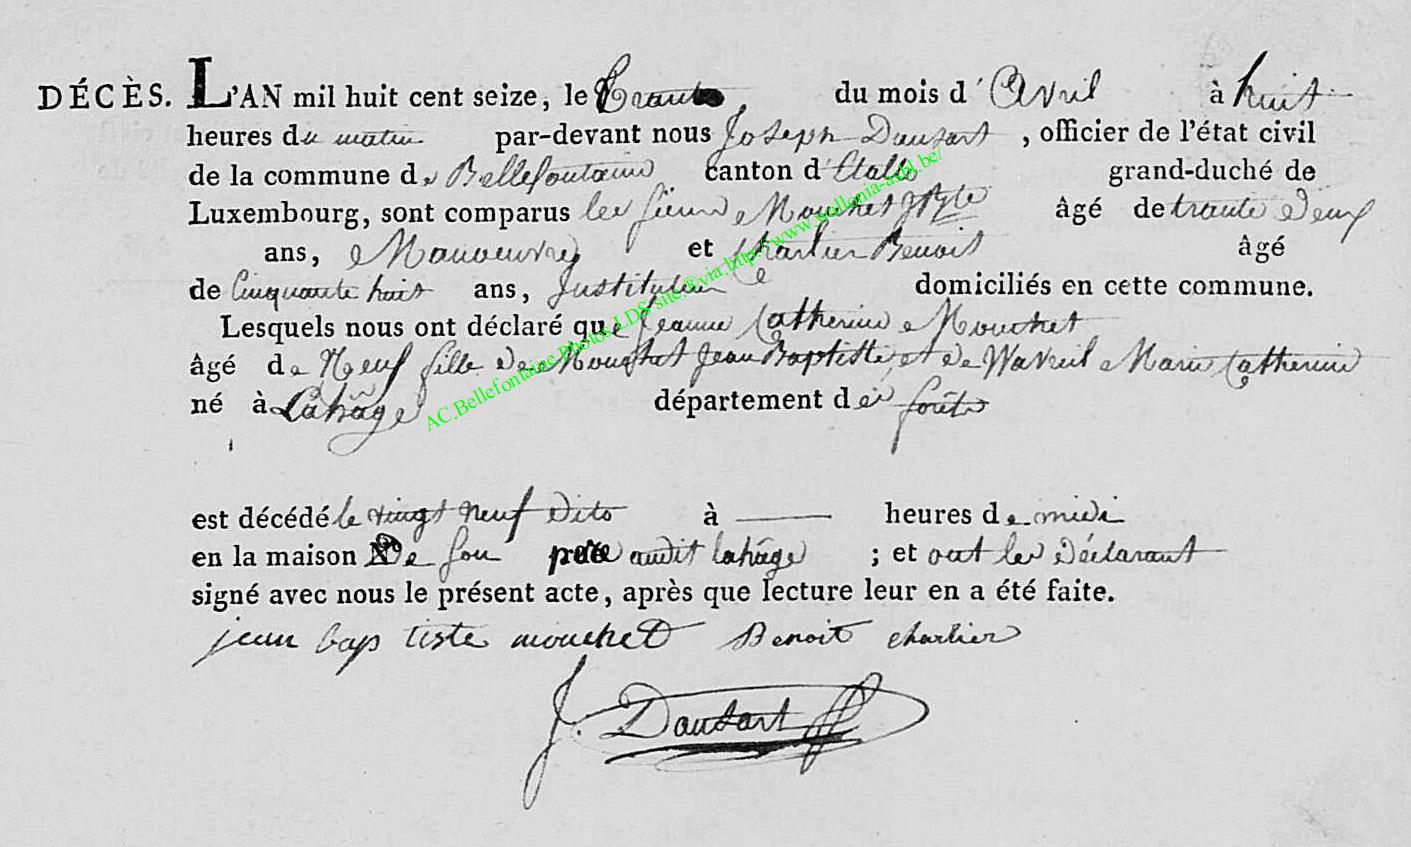 DÉCÈS. L'AN mil huit cent seize, le trante du mois d'Avril à huit
heures du matin par-devant nous Joseph Dansart, officier de l'état civil
de la commune de Bellefontaine canton d'Etalle grand-duché de
Luxembourg, sont comparus les sieurs Mouchet J Bte âgé de trante deux
ans, Manoeuvre et Charlier Benoit âgé
de Cinquante huit ans, Instituteur domiciliés en cette commune.
Lesquels nous ont déclaré que Jeanne Catherine Mouchet
âgé de Neuf fille de Mouchet Jean Baptiste et de Waveul Marie Catherine
né à Lahâge département des forêts
est décédé le vingt neuf dito à — heures de midi
en la maison de son père audit lahâge ; et ont les déclarant
signé avec nous le présent acte, après que lecture leur en a été faite.
jean baptiste mouchet Benoit charlier
J. Dansart
AC.Bellefontaine.Photos LDS site @via http://www.wallonia-asbl.be/